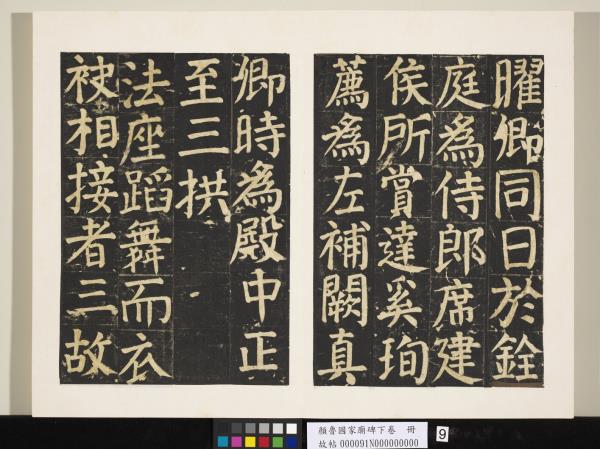 曜卿同日於銓
庭為侍郎席建
侯所賞達奚珣
薦為左補闕真
卿時為殿中正
至三拱
法座蹈舞而衣
袂相接者三故
顏魯國家廟碑下卷 冊
故帖 000091N000000000
9